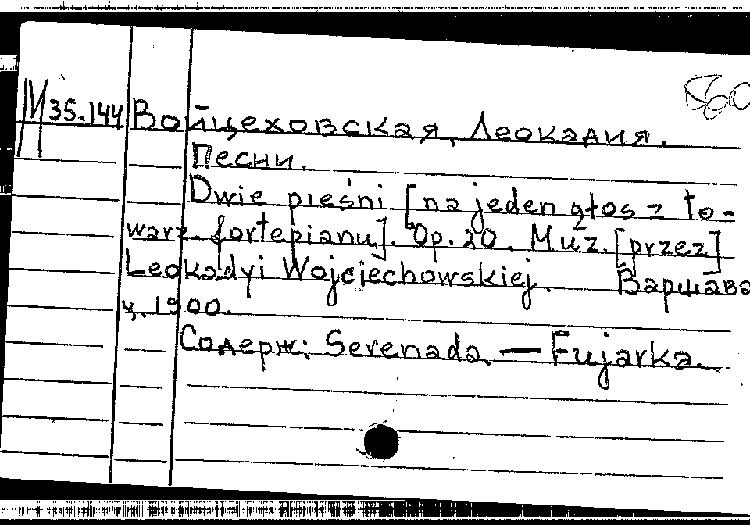 М 35.144 Войцеховская, Леокадия.
Песни.
Dwie pieśni [na jeden głos z to-
warz. fortepianu]. Op. 20. Muz. [przez]
Leokadyi Wojciechowskiej. Варшава
ц. 1900.
Содерж: Serenada. — Fujarka.